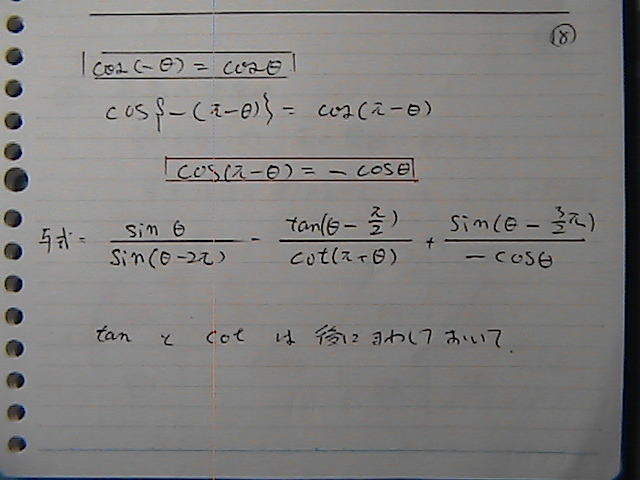 ⑱
cos(-θ) = cosθ
cos{-(π-θ)} = cos(π-θ)
cos(π-θ) = - cosθ
与式 = sin θ / sin(θ-2π) - tan(θ - π/2) / cot(π+θ) + sin(θ - 3/2 π) / - cosθ
tan と cot は 後に まわして おいて.